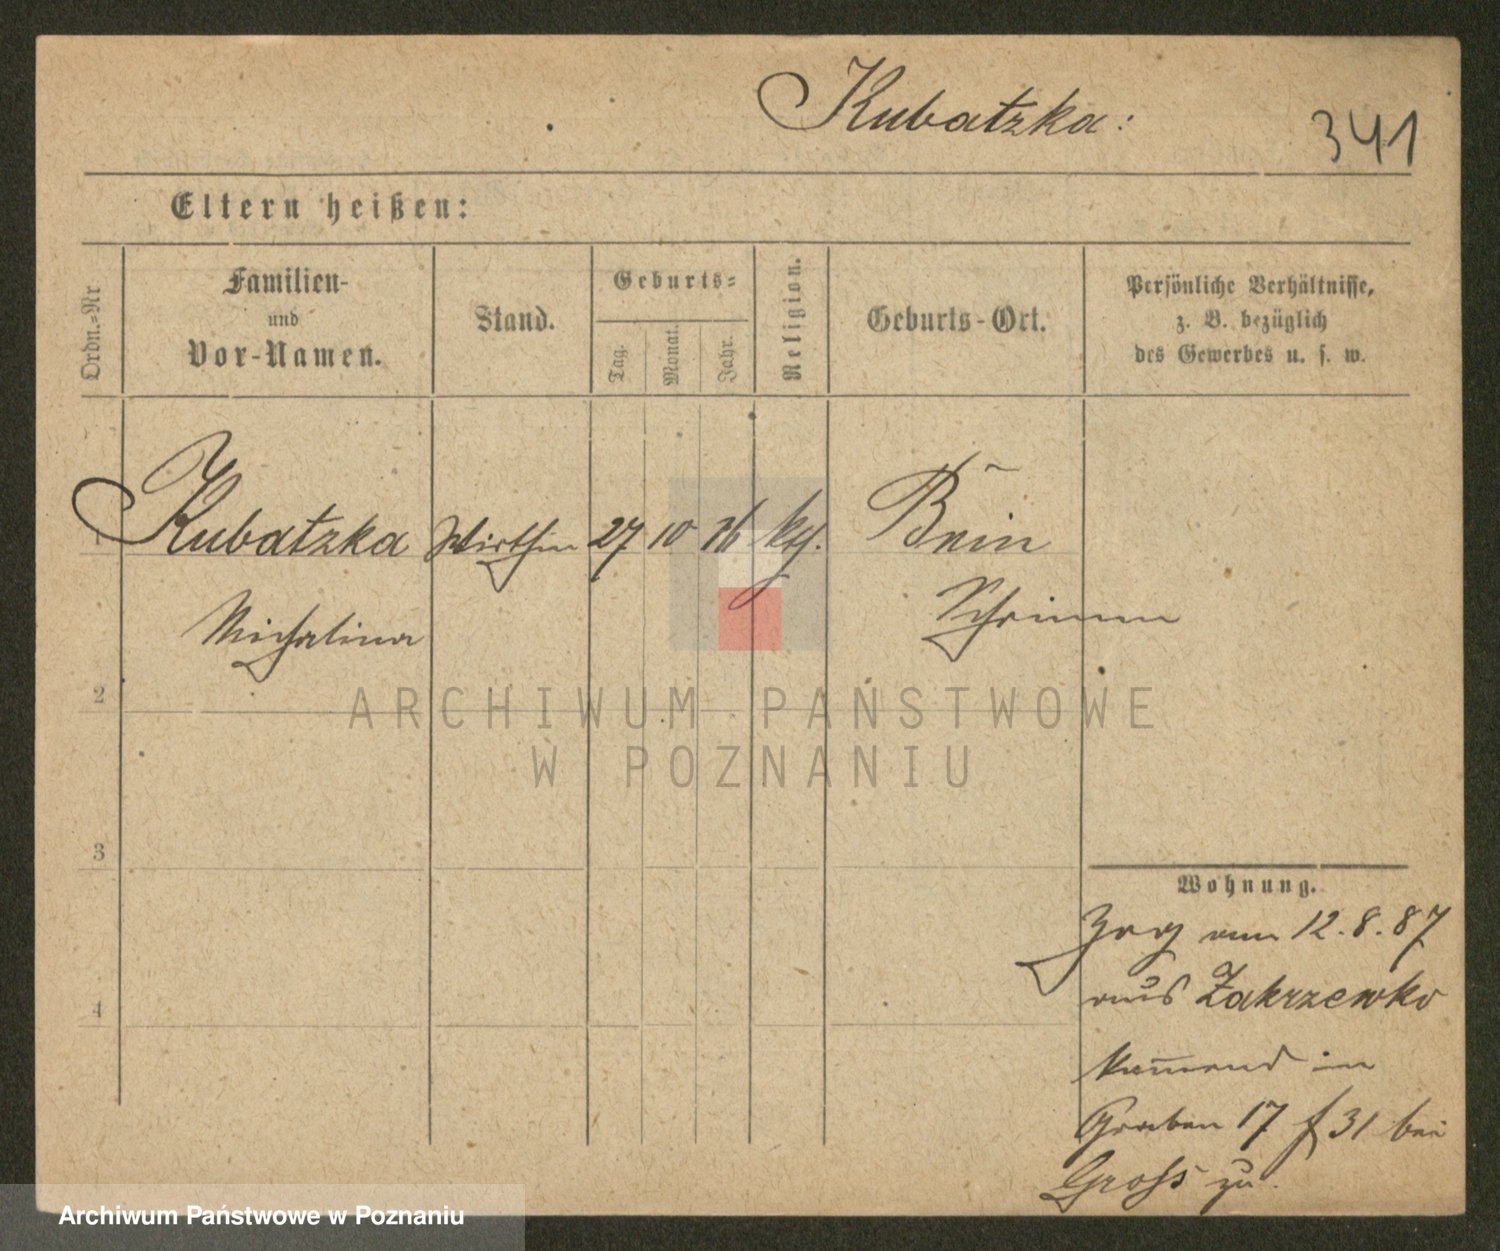 Kubatzka:
341
Eltern heißen:
Ordn.=Nr
Familien-
und
Vor-Namen.
Stand.
Geburts=
Tag.
Monat.
Jahr.
Religion.
Geburts-Ort.
Persönliche Verhältnisse,
z. B. bezüglich
des Gewerbes u. s. w.
1 Kubatzka Wirthin 27 10 36 kg. Bnin
Michalina Schrimm
2
ARCHIWUM PAŃSTWOWE
W POZNANIU
3
Wohnung.
Zog am 12.8.87
aus Zakrzewko
4
kom̅end in
Graben 17 f 31 bei
Gross zu.
Archiwum Państwowe w Poznaniu